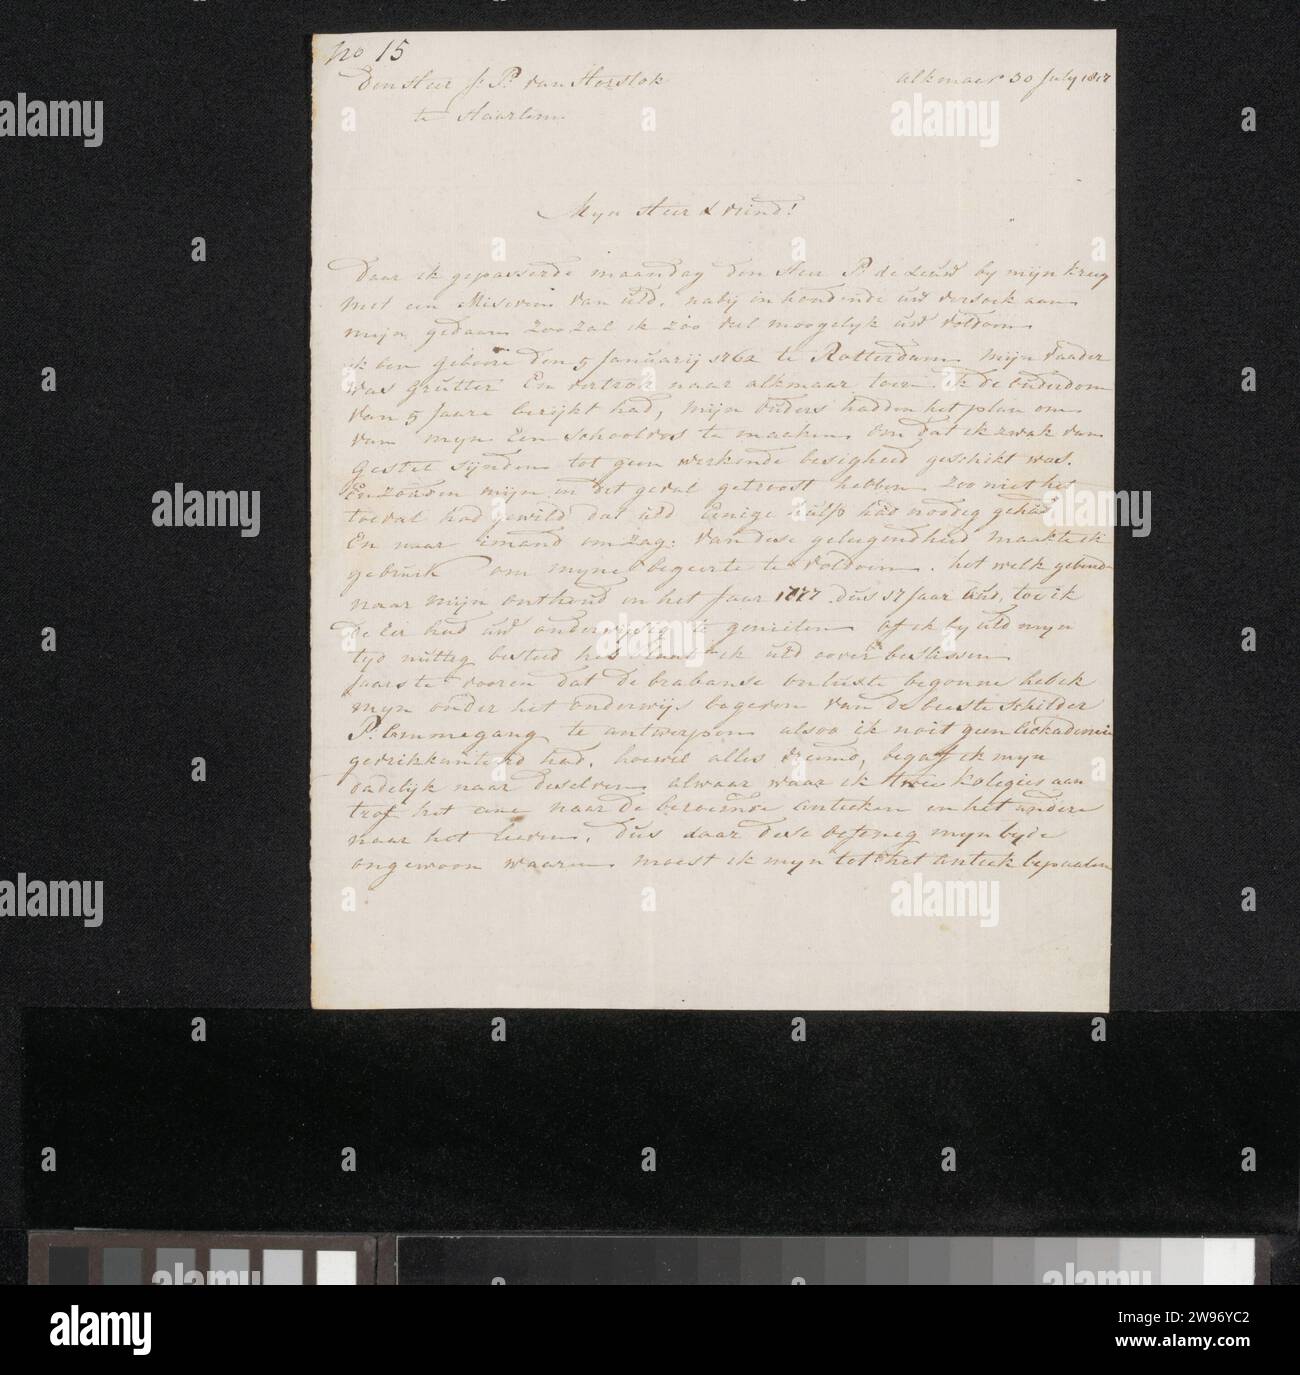 no 15
Den Heer J: P: van Horstok
alkmaar 30 July 1817
te Haarlem
Mijn Heer & vriend!
Daar ik gepasseerde maandag den Heer P. de Leeuw by mijn kreeg
met een Missieve van uEd. naby in houdende uw versoek aan
mijn gedaan Zoo zal ik zoo veel moogelyk uw voldoen
ik ben geboore den 5 Januarij 1762 te Rotterdam mijn vaader
was grutter En vertrok naar alkmaar toen ik de ouderdom
van 5 Jaare berijkt had, mijn ouders hadden het plan om
van myn Een schoolvos te maaken om dat ik zwak van
gestel sijnden tot geen werkende besigheid geschikt was.
En zouden mijn in dit geval getroost hebben zoo niet het
toeval had gewild dat uEd Eenige hulp had noodig gehad
En naar imand om zag: van dese geleegendheid maakte ik
gebruik om myne begeerte te voldoen. het welk
naar mijn onthoud in het Jaar 1777 dus 17 Jaar oud, toe ik
de Eer had uw onderwijs te genieten of ik by uEd myn
tyd nuttig besteed heb laat ik uEd over beslissen
Jaars te vooren dat de brabanse onluste begonne heb ik
myn onder het onderwijs begeeven van de beeste schilder
P. Ommegang te antwerpen alsoo ik noit geen
had, hoewel alles vreemd, begaf ik myn
dadelijk naar deselven alwaar waar ik twee kolegies aan
trof het eene naar de beroemde antieken en het andere
naar het leeven. dus daar dese oefening myn byde
ongewoon waaren moest ik myn tot het antiek bepaalen
alamy
Image ID: 2W96YC2
www.alamy.com